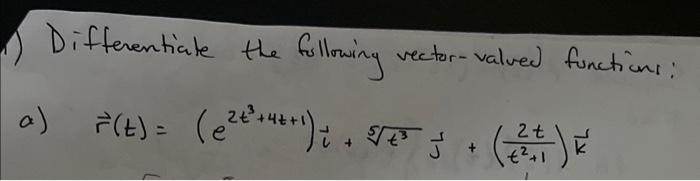 1) Differentiate the following vector-valued functions:
a) r⃗(t) = (e^(2t³+4t+1)) i⃗ + ⁵√t³ j⃗ + (2t/(t²+1)) k⃗